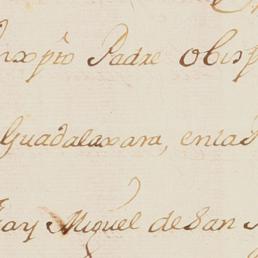 Padre Obisp
Guadalaxara, en la
ray Miguel de San